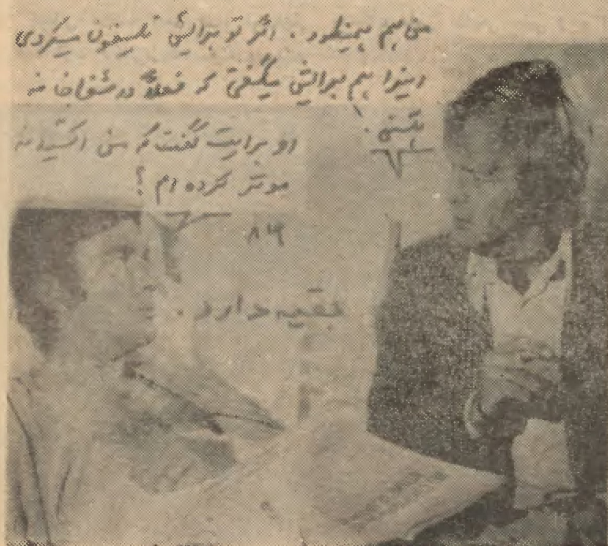 من هم همینطور . اگر تو برایش تلیفون میکردی
اینرا هم برایش میگفتی که فعلاً در شفاخانه
او برایت گفت که من اکسیدنت
موتر کرده ام ؟
بقیه دارد .